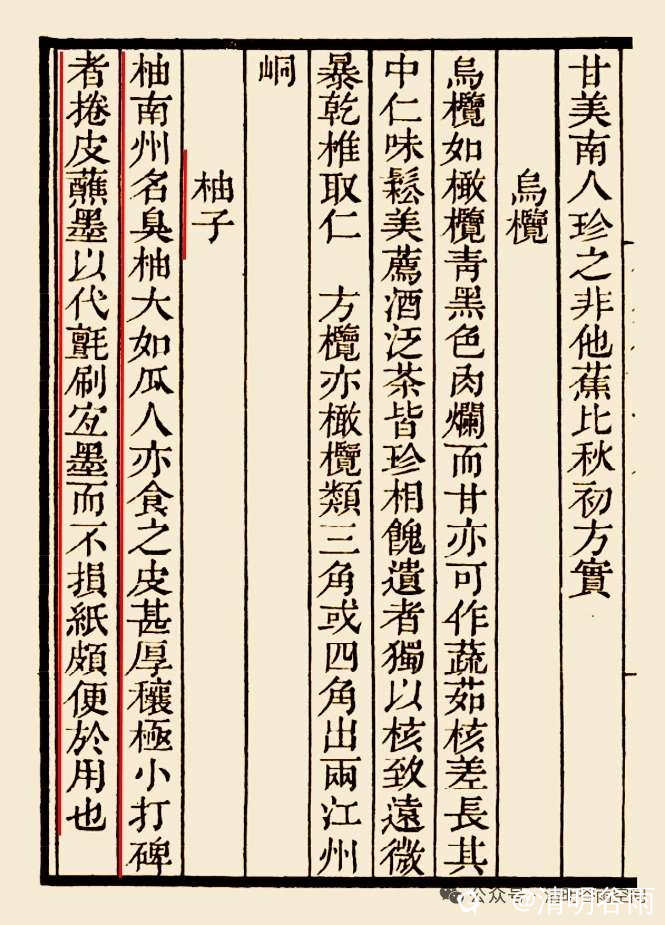 甘美南人珍之非他蕉比秋初方實
烏欖
烏欖如橄欖青黑色肉爛而甘亦可作蔬茹核差長其
中仁味鬆美薦酒泛茶皆珍相餽遺者獨以核致遠微
暴乾椎取仁　方欖亦橄欖類三角或四角出兩江州
峒
柚子
柚南州名臭柚大如瓜人亦食之皮甚厚穰極小打碑
者捲皮蘸墨以代氈刷宐墨而不損紙頗便於用也
@清明谷雨